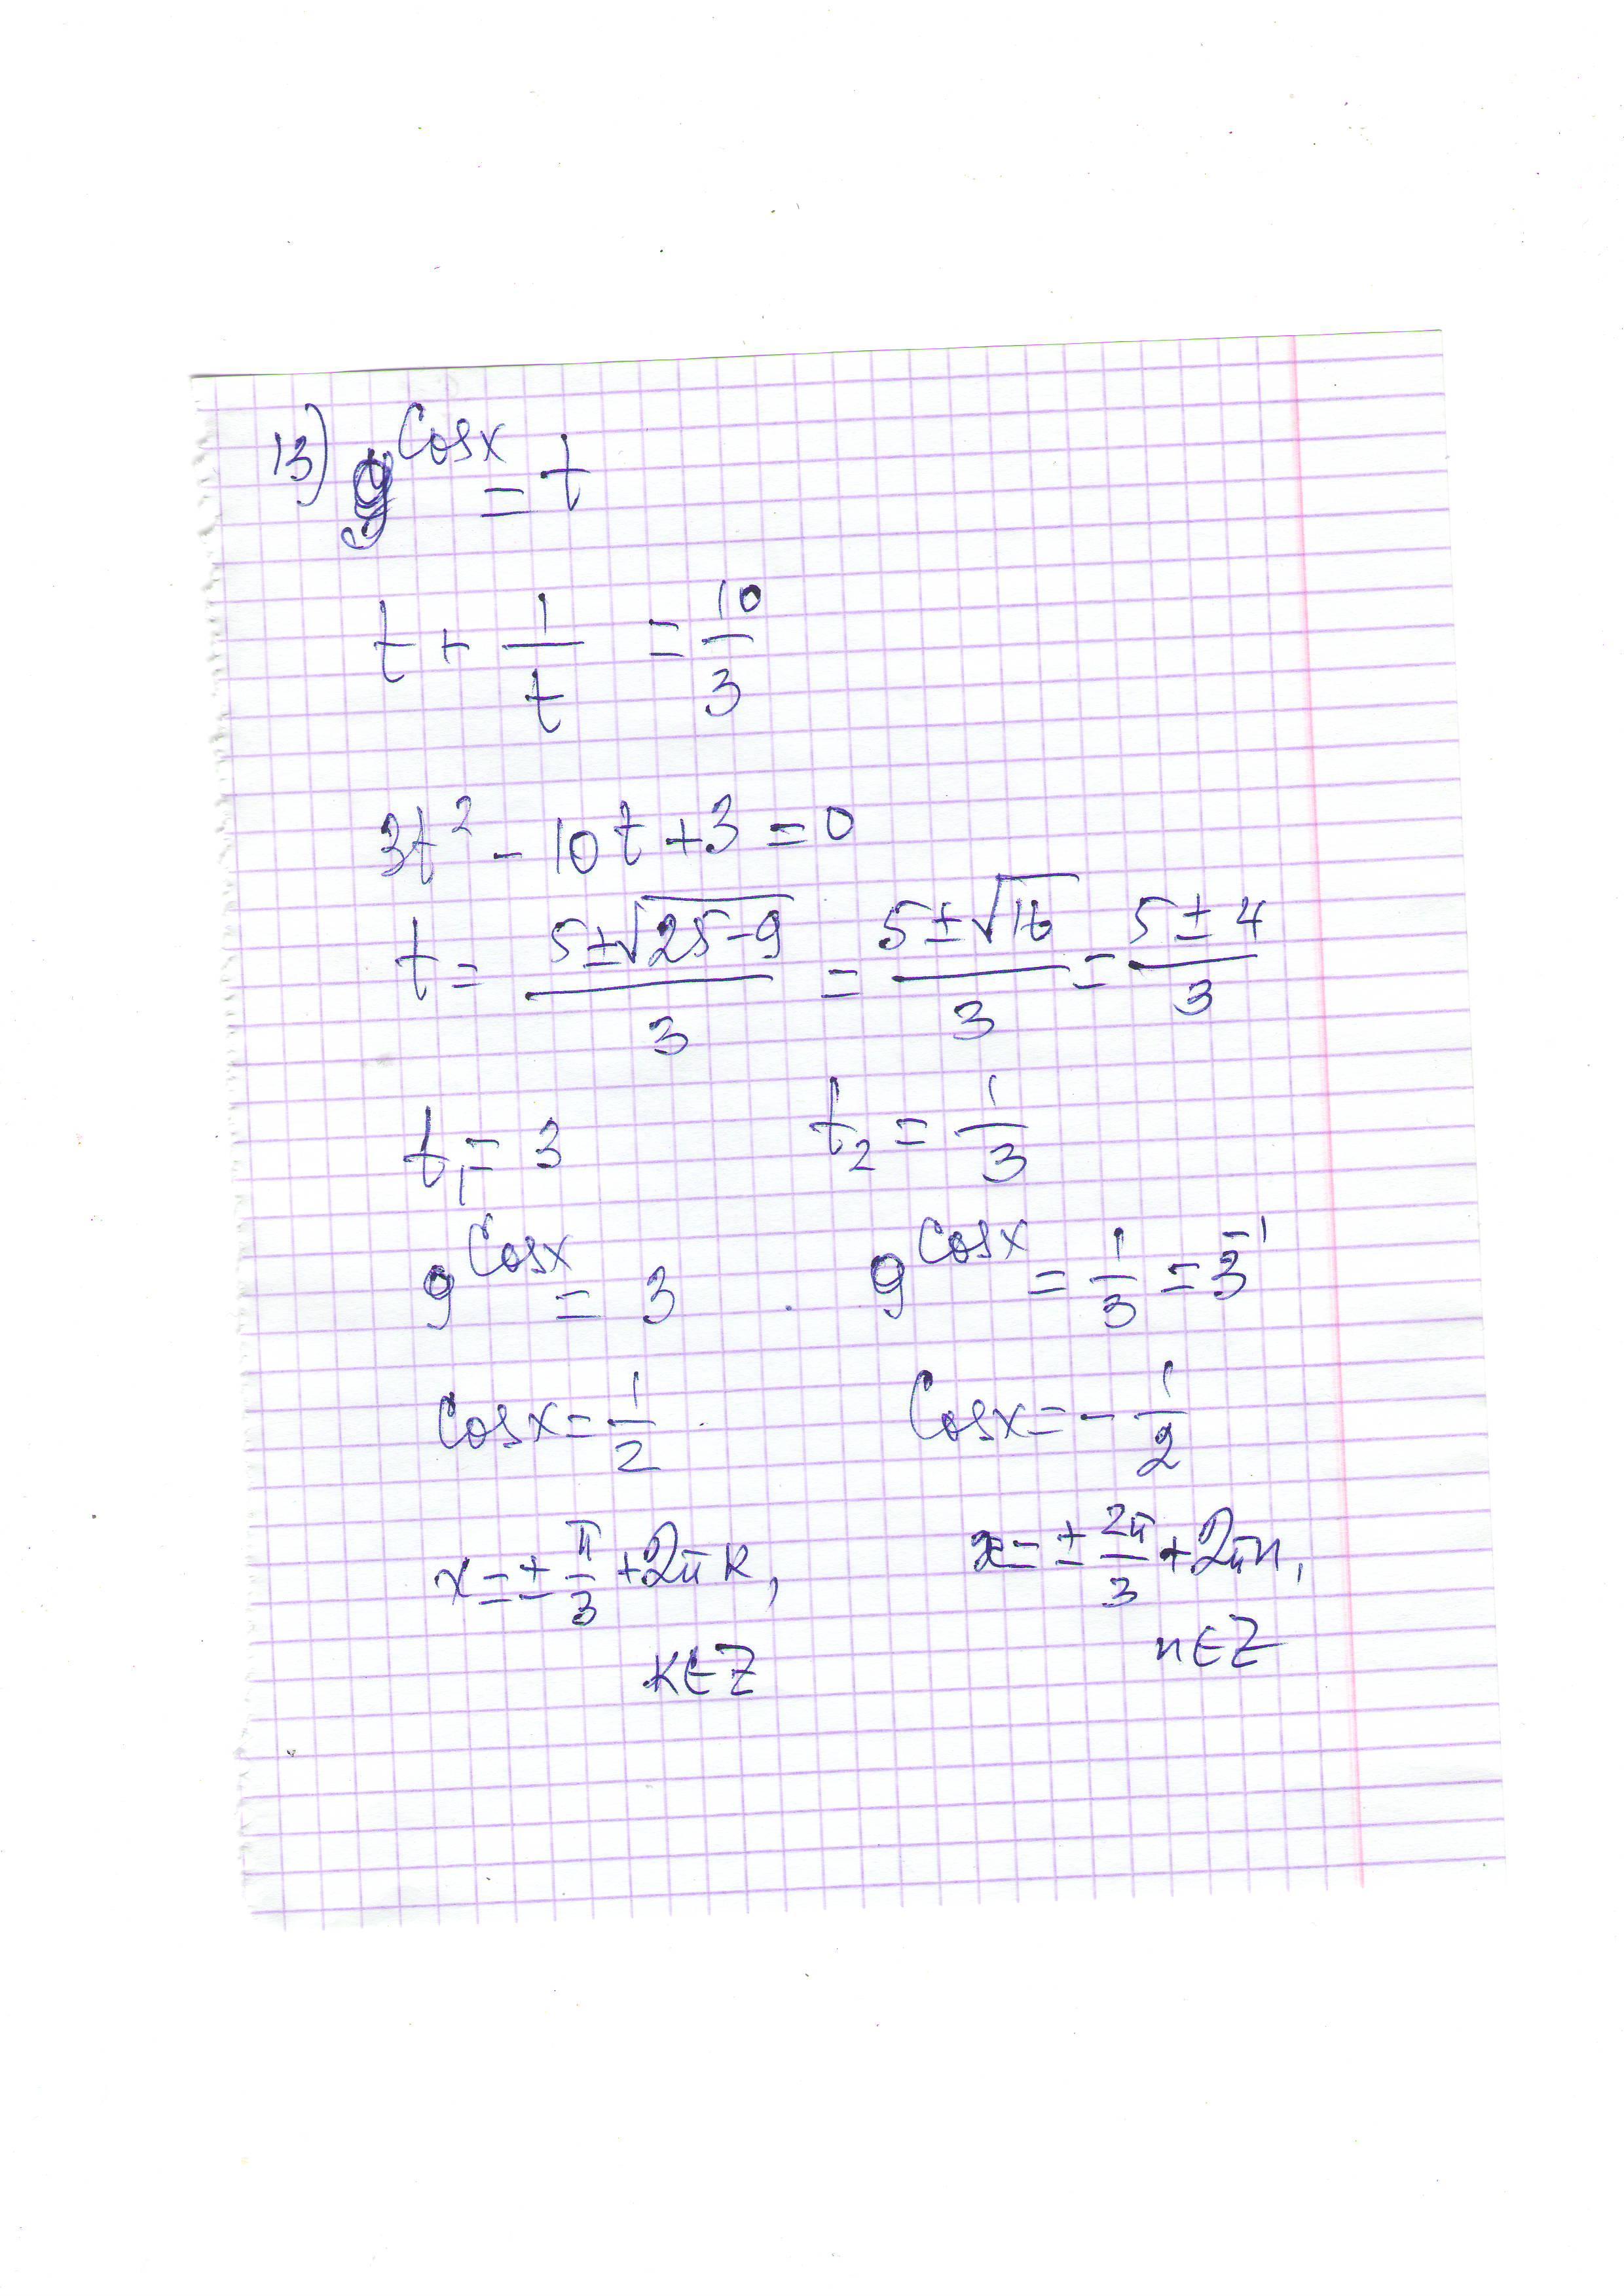 13) 9^cosx = t
t + 1/t = 10/3
3t² - 10t + 3 = 0
t = (5±√(25-9))/3 = (5±√16)/3 = (5±4)/3
t₁ = 3 t₂ = 1/3
9^cosx = 3 9^cosx = 1/3 = 3⁻¹
Cosx = 1/2 Cosx = -1/2
x = ± π/3 + 2πk, x = ± 2π/3 + 2πn,
k∈Z n∈Z